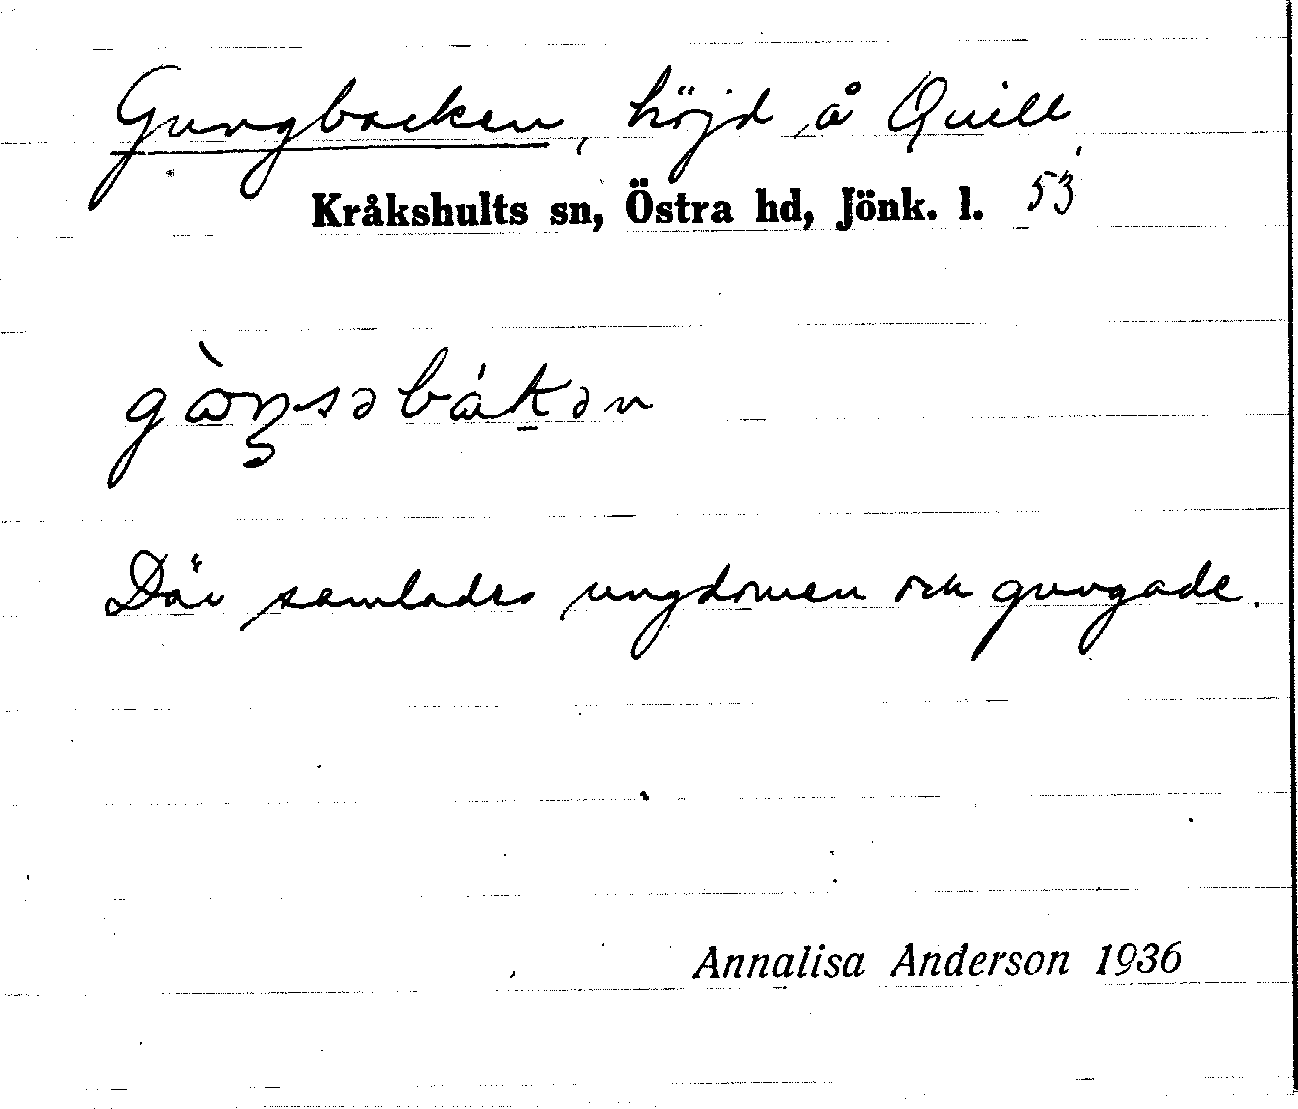 Gungbacken, höjd å Quill
Kråkshults sn, Östra hd, Jönk. l. 53
Där samlades ungdomen och gungade.
Annalisa Anderson 1936